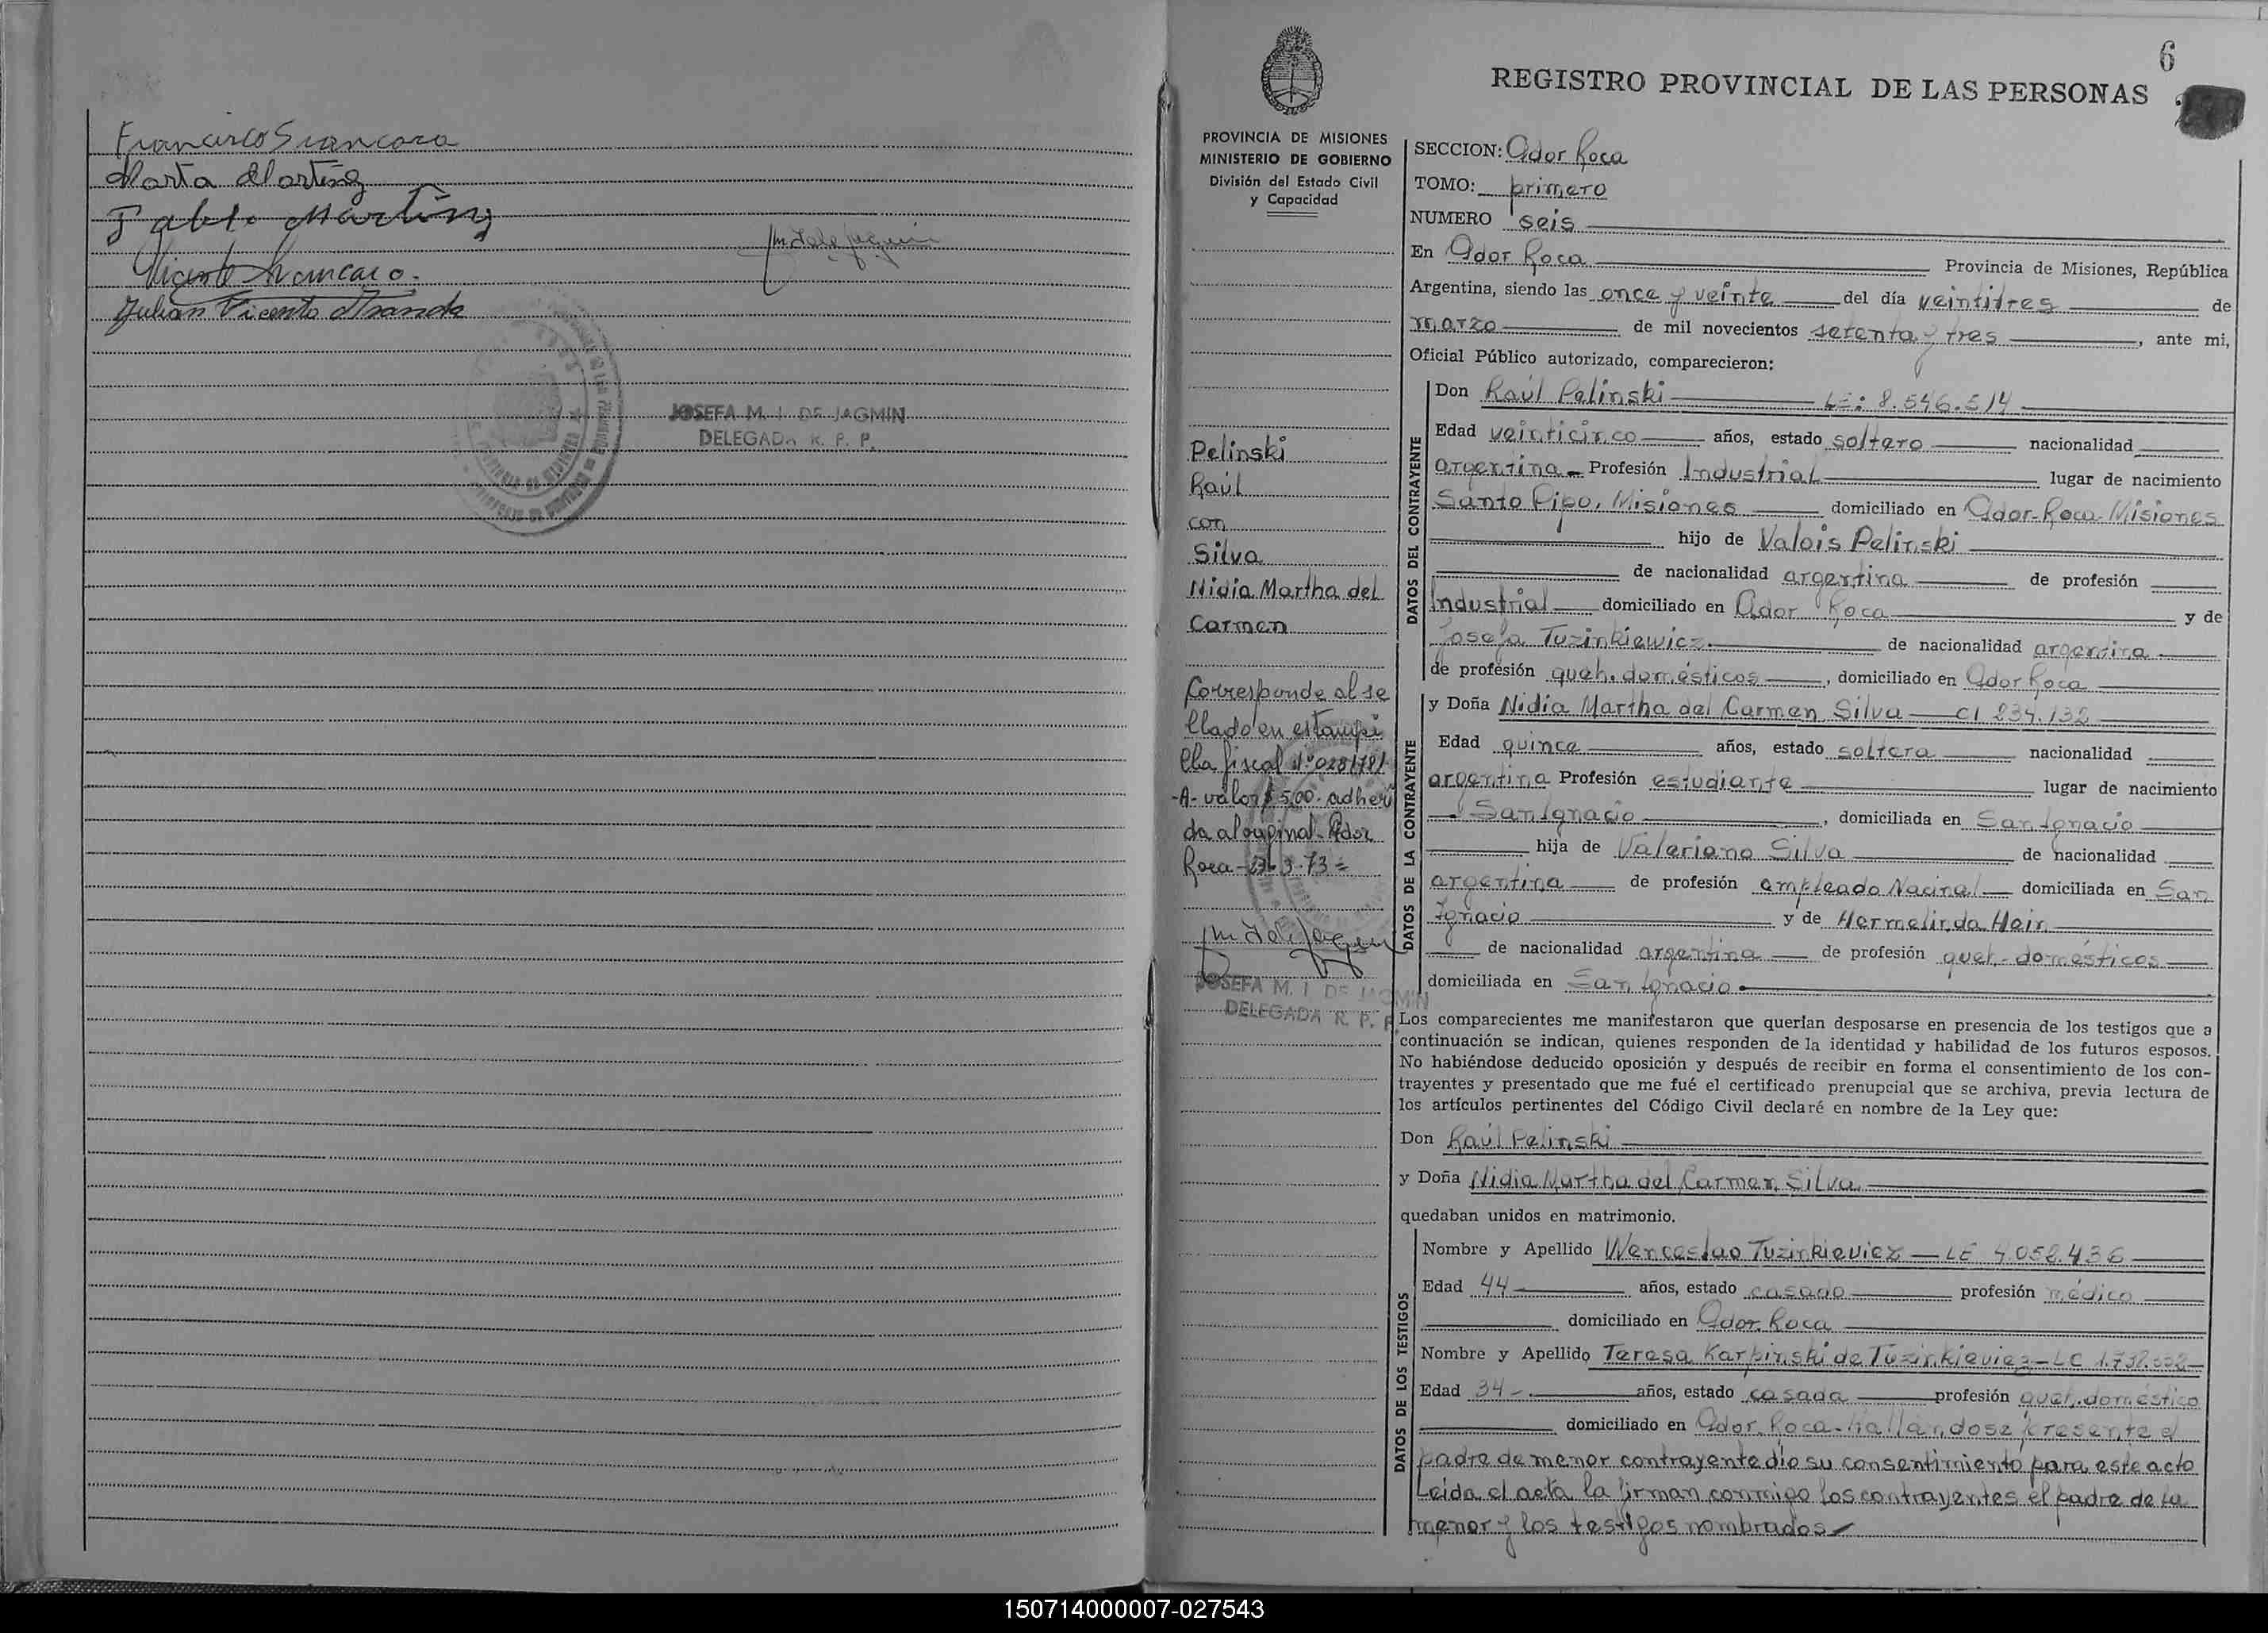 Marta Martinez
Pablo Martinez
JOSEFA M. I. DE JAGMIN
DELEGADA R. P. P.
6
REGISTRO PROVINCIAL DE LAS PERSONAS
PROVINCIA DE MISIONES
MINISTERIO DE GOBIERNO
División del Estado Civil
y Capacidad
Pelinski
Raúl
con
Silva
Nidia Martha del
Carmen
Corresponde al se
llado en estampi
lla fiscal
-A- valor $ 5,00. adheri
da al original-Ador
Roca-23-3-73=
JOSEFA M. I DE JAGMIN
DELEGADA R. P. P.
SECCION: Ador Roca
TOMO: primero
NUMERO seis
En Ador Roca Provincia de Misiones, República
Argentina, siendo las once y veinte del día veintitres de
marzo de mil novecientos setenta y tres, ante mi,
Oficial Público autorizado, comparecieron:
DATOS DEL CONTRAYENTE
Don Raúl Pelinski LE: 8.546.514
Edad veinticinco años, estado soltero nacionalidad
argentina Profesión Industrial lugar de nacimiento
Santo Pipo, Misiones domiciliado en Ador-Roca Misiones
hijo de Valois Pelinski
de nacionalidad argentina de profesión
Industrial domiciliado en Ador Roca y de
Josefa Tuzinkiewicz de nacionalidad argentina
de profesión queh. domésticos, domiciliado en Ador Roca
DATOS DE LA CONTRAYENTE
y Doña Nidia Martha del Carmen Silva CI 234.132
Edad quince años, estado soltera nacionalidad
argentina Profesión estudiante lugar de nacimiento
San Ignacio, domiciliada en San Ignacio
hija de Valeriano Silva de nacionalidad
argentina de profesión empleado Nacinal domiciliada en San
Ignacio y de Hermelinda Hein
de nacionalidad argentina de profesión queh. domésticos
domiciliada en San Ignacio.
Los comparecientes me manifestaron que querían desposarse en presencia de los testigos que a
continuación se indican, quienes responden de la identidad y habilidad de los futuros esposos.
No habiéndose deducido oposición y después de recibir en forma el consentimiento de los con-
trayentes y presentado que me fué el certificado prenupcial que se archiva, previa lectura de
los artículos pertinentes del Código Civil declaré en nombre de la Ley que:
Don Raúl Pelinski
y Doña Nidia Martha del Carmen Silva
quedaban unidos en matrimonio.
DATOS DE LOS TESTIGOS
Nombre y Apellido Wenceslao Tuzinkieviez LE 4.052.436
Edad 44 años, estado casado profesión médico
domiciliado en Ador Roca
Nombre y Apellido Teresa Karpinski de Tuzinkieviez-LC
Edad 34- años, estado casada profesión queh. doméstico
domiciliado en Ador Roca-hallándose presente el
padre de menor contrayente dio su consentimiento para este acto
Leída el acta la firman conmigo los contrayentes el padre de la
menor y los testigos nombrados
150714000007-027543